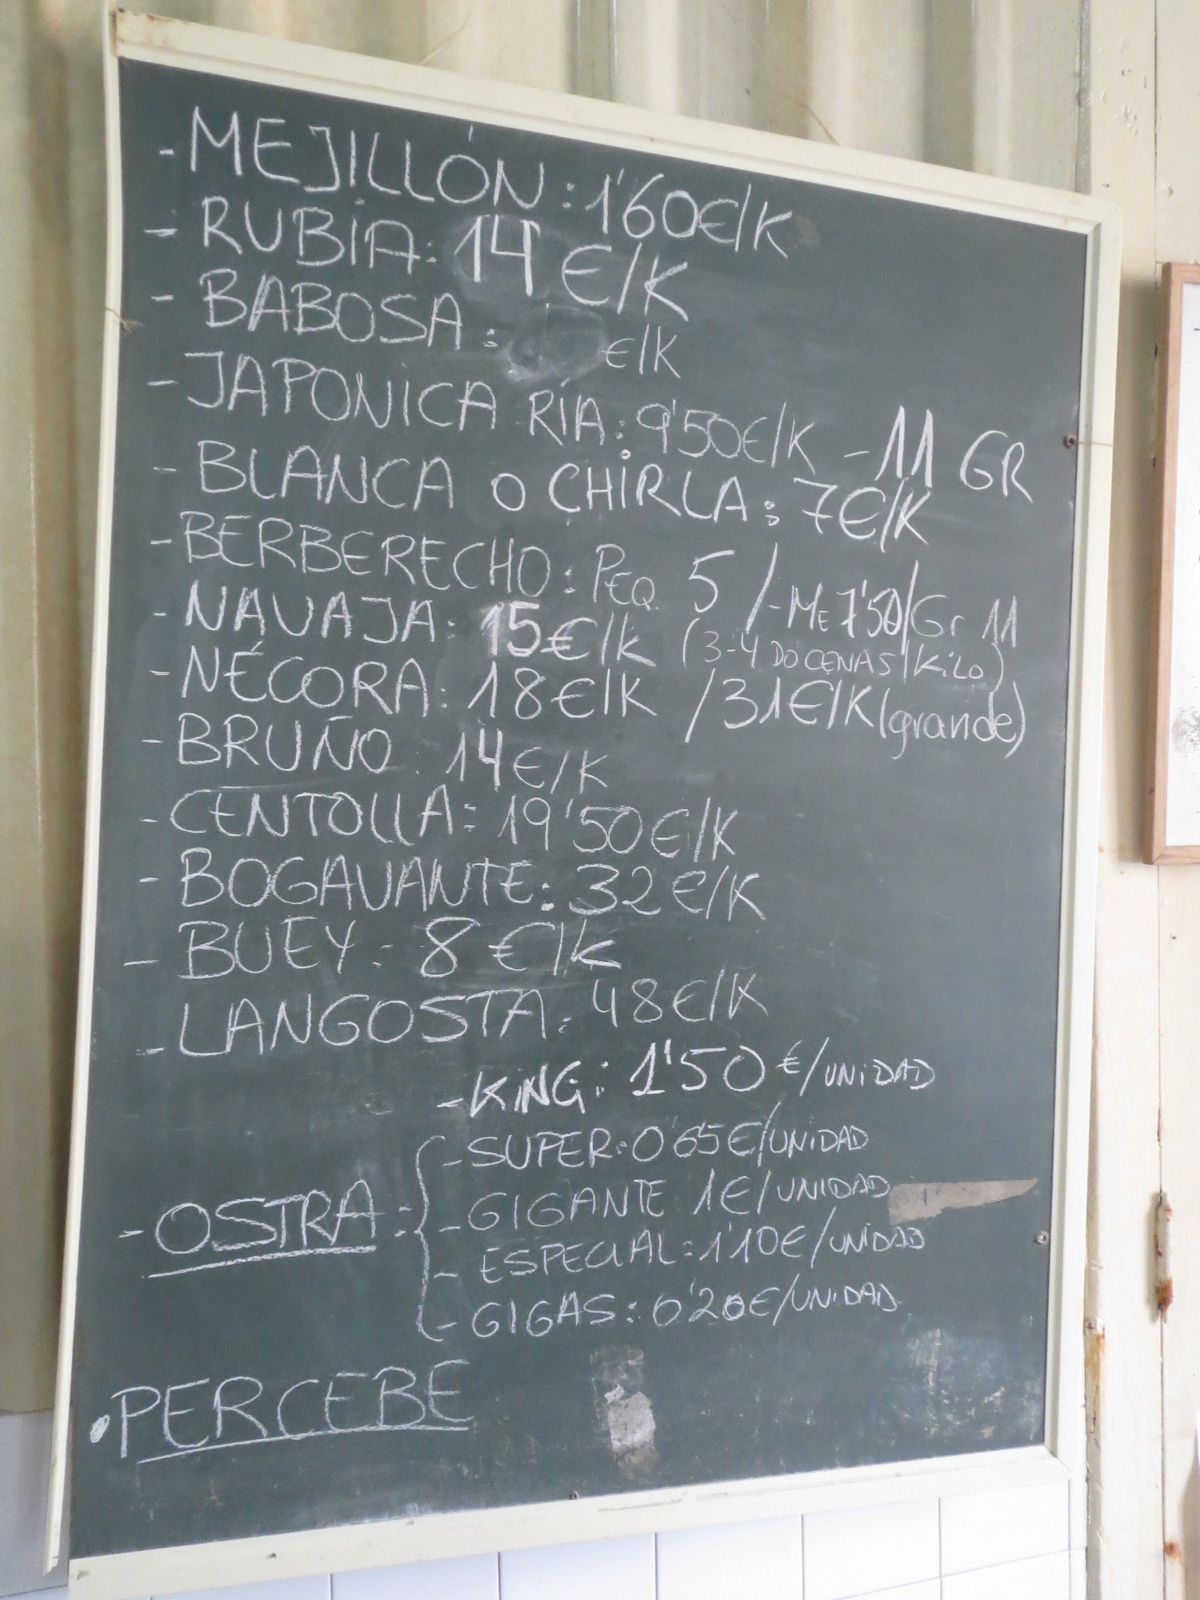 - MEJILLÓN: 1'60€/K
- RUBIA: 14 €/K
- BABOSA: €/K
- JAPONICA RÍA: 9'50€/K - 11 GR
- BLANCA O CHIRLA: 7€/K
- BERBERECHO: PEQ. 5 / - ME 7'50/Gr 11
- NAVAJA: 15€/K (3-4 DOCENAS/KILO)
- NÉCORA: 18€/K /31€/K (grande)
- BRUÑO 14€/K
- CENTOLLA: 19'50€/K
- BOGAVANTE: 32€/K
- BUEY: 8€/K
- LANGOSTA: 48€/K
- OSTRA:
- KING: 1'50 €/UNIDAD
- SUPER: 0'65€/UNIDAD
- GIGANTE 1€/UNIDAD
- ESPECIAL: 1'10€/UNIDAD
- GIGAS: 0'20€/UNIDAD
• PERCEBE